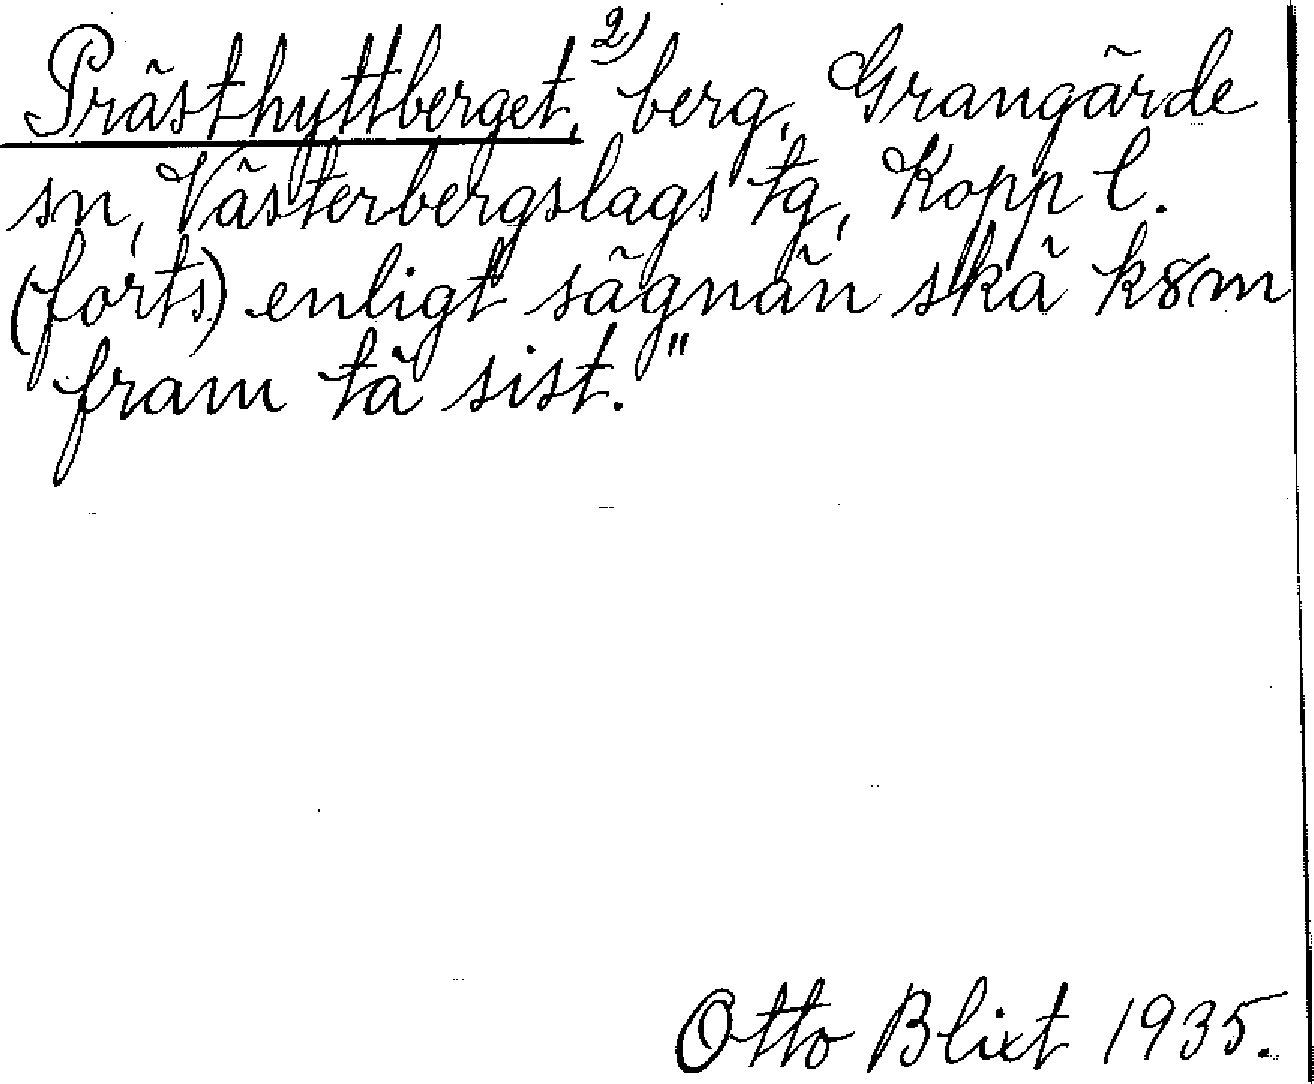 Prästhyttberget, 2) berg, Grangärde
sn, Västerbergslags tg, Kopp l.
(forts) enligt sägnän skå k8m
fram tå sist."
Otto Blixt 1935.